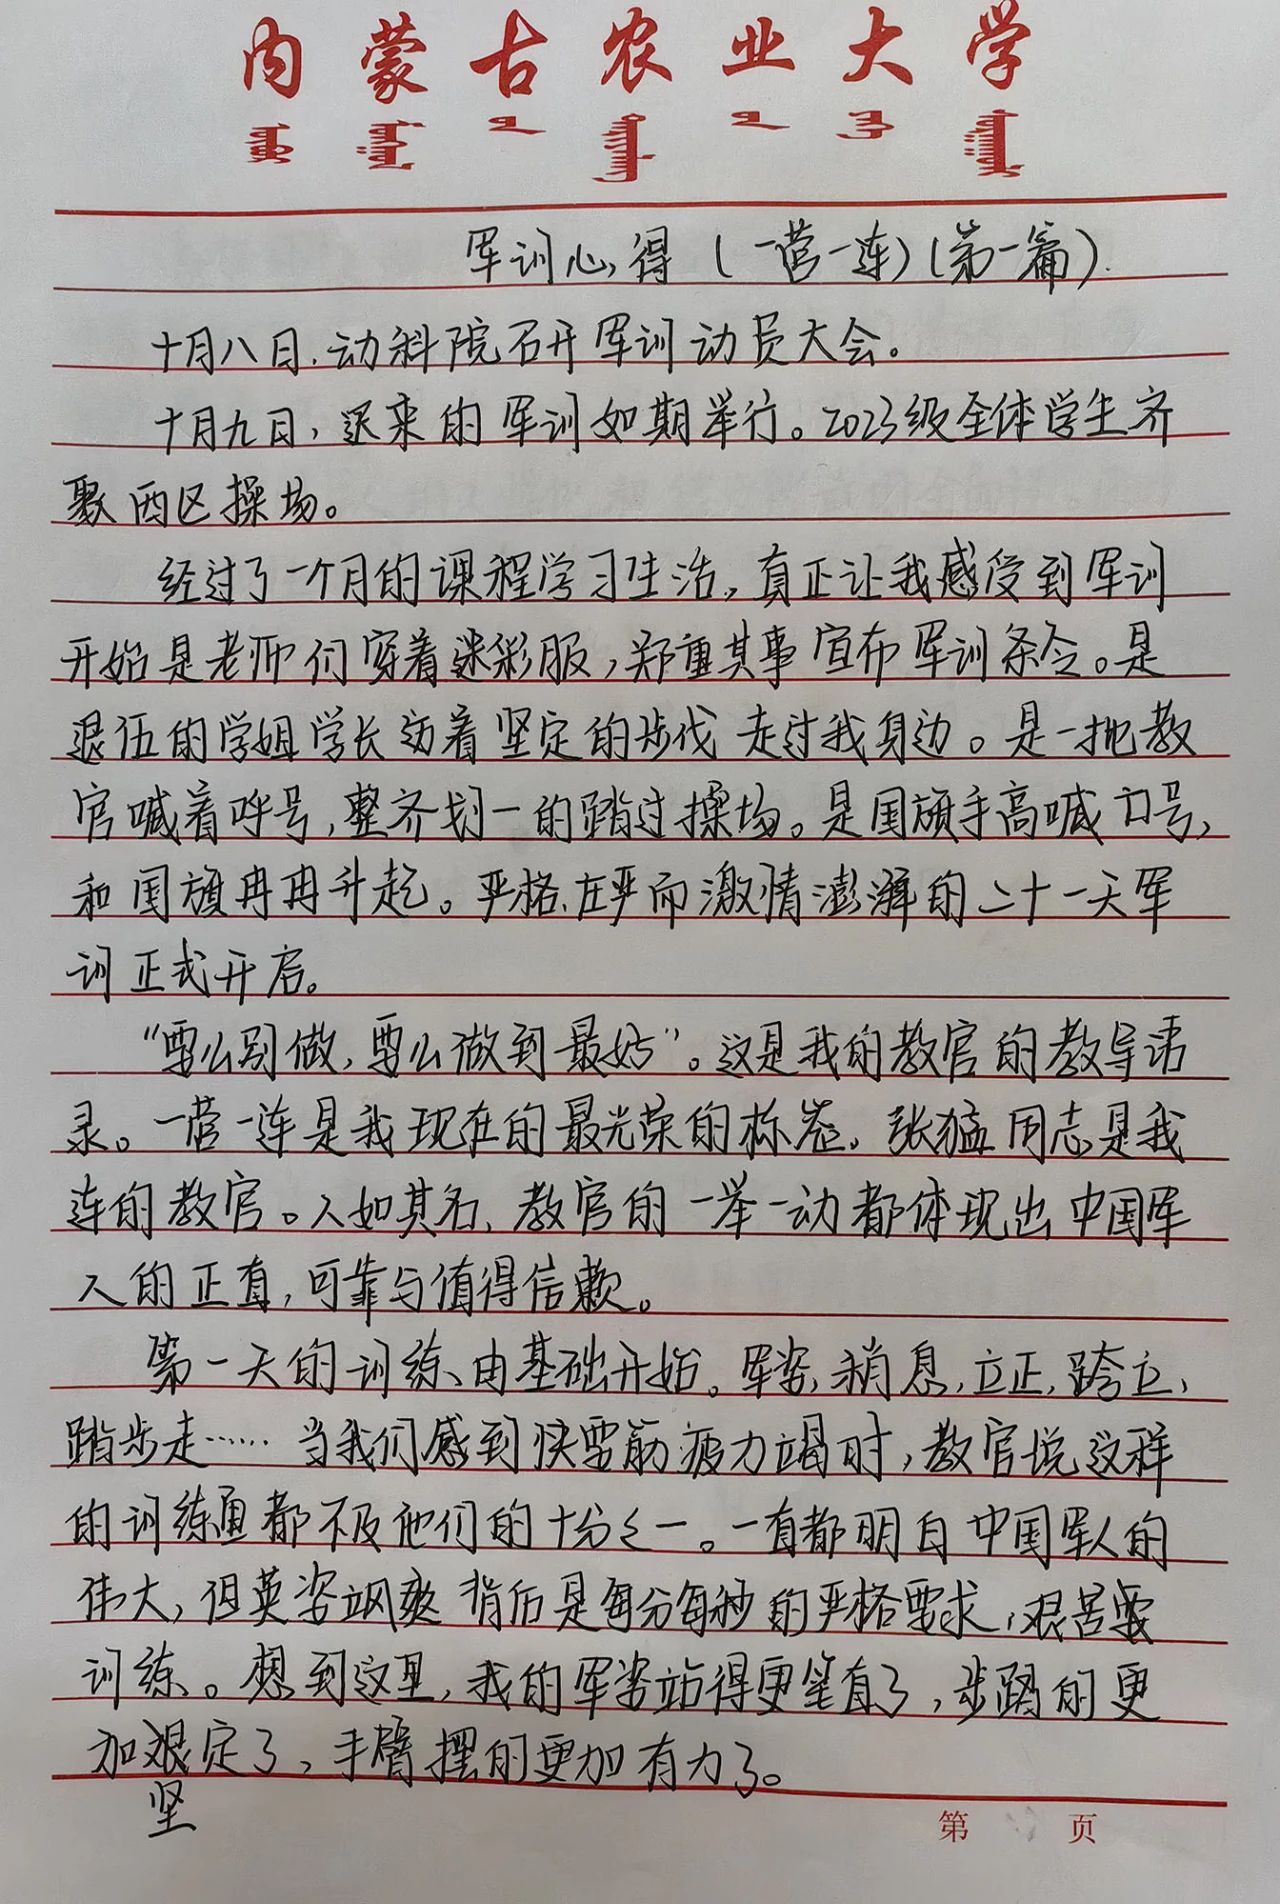 内蒙古农业大学
军训心得（一营一连）（第一篇）.
十月八日，动科院召开军训动员大会。
十月九日，迟来的军训如期举行。2023级全体学生齐
聚西区操场。
经过了一个月的课程学习生活，真正让我感受到军训
开始是老师们穿着迷彩服，郑重其事宣布军训条令。是
退伍的学姐学长迈着坚定的步伐走过我身边。是一批教
官喊着呼号，整齐划一的踏过操场。是国旗手高喊口号，
和国旗冉冉升起。严格、庄严而激情澎湃的二十一天军
训正式开启。
“要么别做，要么做到最好”。这是我的教官的教导语
录。一营一连是我现在的最光荣的标签，张猛同志是我
连的教官。人如其名、教官的一举一动都体现出中国军
人的正直，可靠与值得信赖。
第一天的训练、由基础开始。军姿，稍息，立正，跨立，
踏步走……当我们感到快要筋疲力竭时，教官说这样
的训练量都不及他们的十分之一。一直都明白中国军人的
伟大，但英姿飒爽背后是每分每秒的严格要求，艰苦
训练。想到这里，我的军姿站得更笔直了，步踏的更
加坚定了、手臂摆的更加有力了。
第 页